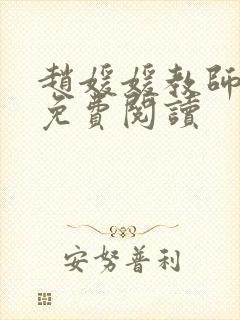 趙媛媛教師
免費閱讀
安努普利